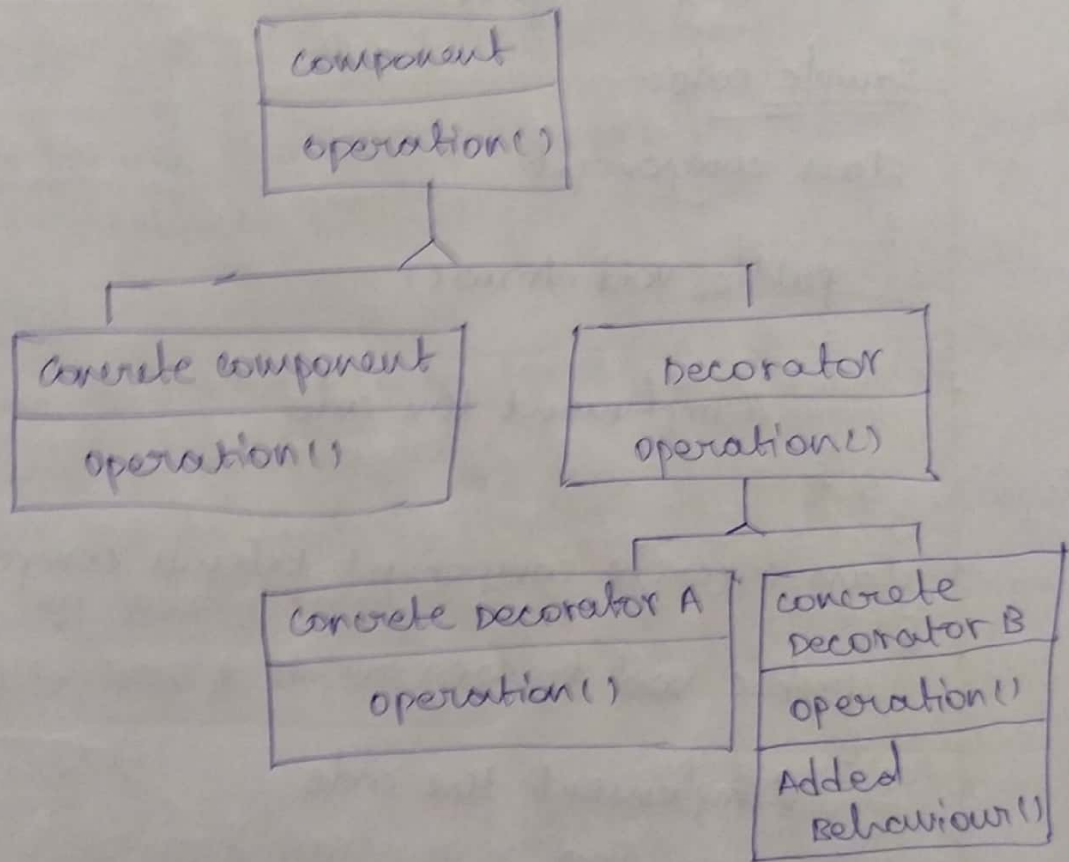 component
operation()
concrete component
operation()
Decorator
operation()
concrete Decorator A
operation()
concrete
Decorator B
operation()
Added
Behaviour()